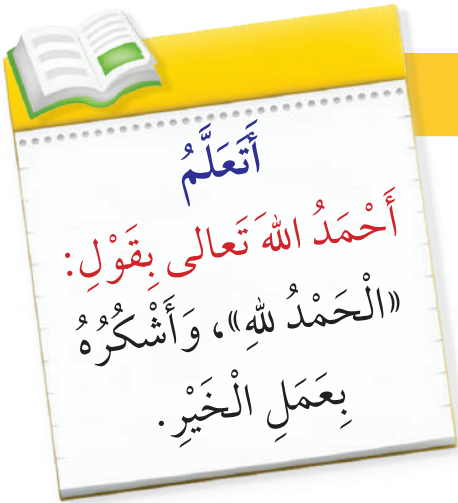 أَتَعَلَّمُ
أَحْمَدُ اللهَ تَعالى بِقَوْلِ:
«الْحَمْدُ لِلهِ»، وَأَشْكُرُهُ
بِعَمَلِ الْخَيْرِ.